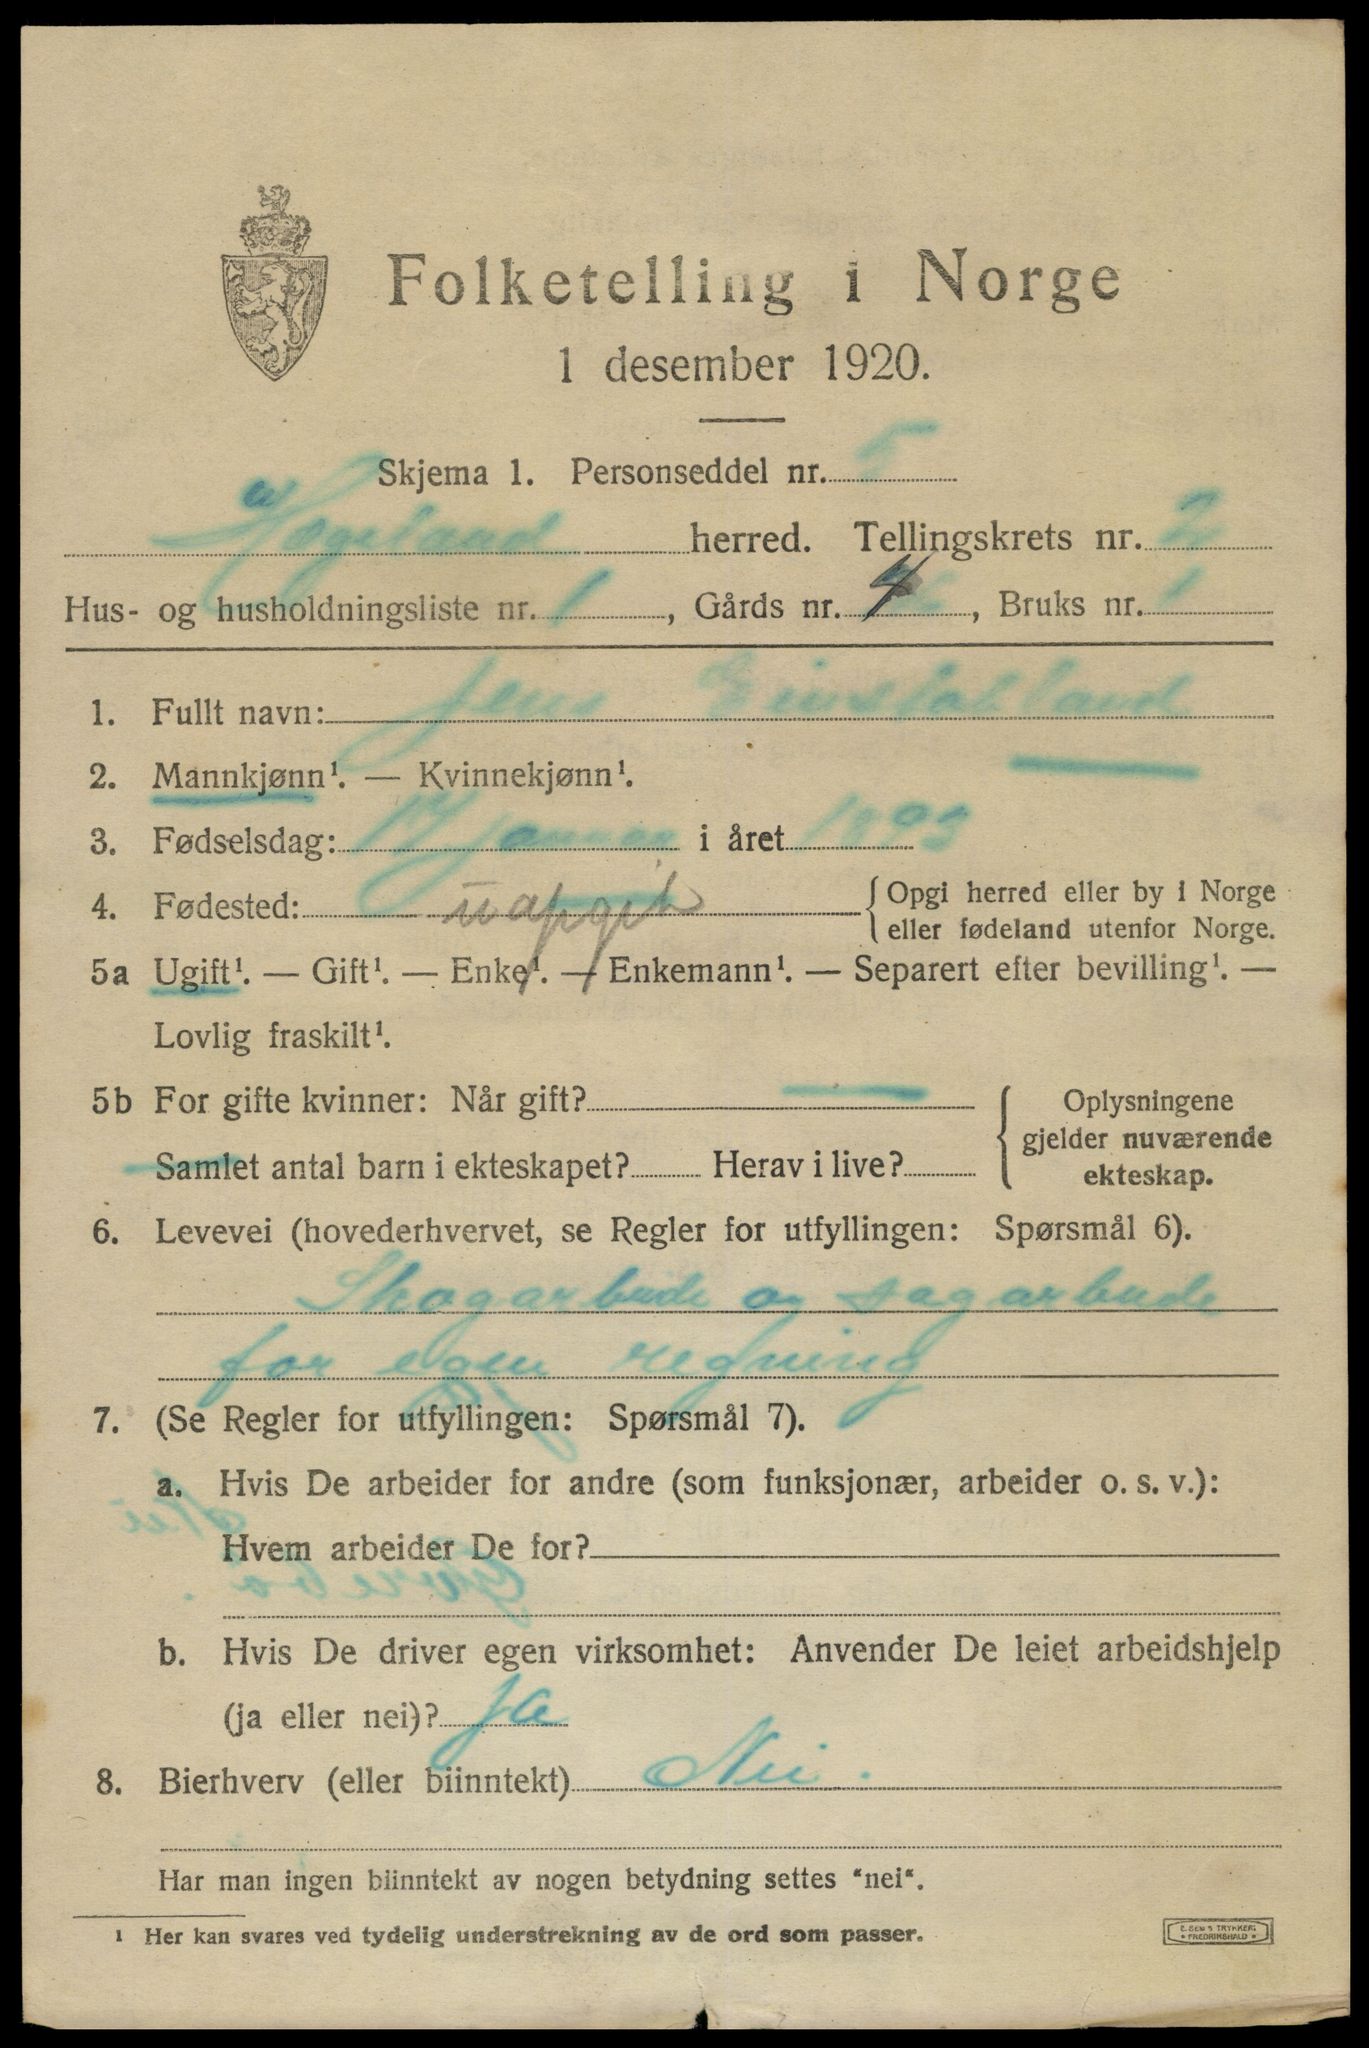 Folketelling i Norge
1 desember 1920.
Skjema 1. Personseddel nr. 5
Hægeland herred. Tellingskrets nr. 2
Hus- og husholdningsliste nr. 1, Gårds nr. 4, Bruks nr. 1
1. Fullt navn: Jens
2. Mannkjønn¹. — Kvinnekjønn¹.
3. Fødselsdag: 17 januar i året 1893
4. Fødested: uopgit { Opgi herred eller by i Norge
eller fødeland utenfor Norge.
5a Ugift¹. — Gift¹. — Enke¹. — Enkemann¹. — Separert efter bevilling¹. —
Lovlig fraskilt¹.
5b For gifte kvinner: Når gift? — { Oplysningene
gjelder nuværende
ekteskap.
Samlet antal barn i ekteskapet? Herav i live?
6. Levevei (hovederhvervet, se Regler for utfyllingen: Spørsmål 6).
Skogarbeide og sagarbeide
for egen regning
7. (Se Regler for utfyllingen: Spørsmål 7).
a. Hvis De arbeider for andre (som funksjonær, arbeider o. s. v.):
Hvem arbeider De for?
b. Hvis De driver egen virksomhet: Anvender De leiet arbeidshjelp
(ja eller nei)? Ja
8. Bierhverv (eller biinntekt) Nei.
Har man ingen biinntekt av nogen betydning settes "nei".
¹ Her kan svares ved tydelig understrekning av de ord som passer.
E. SEM'S TRYKKERI
FREDRIKSHALD